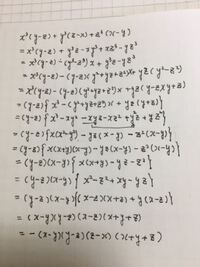 x³(y-z) + y³(z-x) + z³(x-y)
= x³(y-z) + y³z - xy³ + xz³ - yz³
= x³(y-z) - (y³-z³)x + y³z - yz³
= x³(y-z) - (y-z)(y²+yz+z²)x + yz(y²-z²)
= x³(y-z) - (y-z)(y²+yz+z²)x + yz(y-z)(y+z)
= (y-z){x³ - (y²+yz+z²)x + yz(y+z)}
= (y-z){x³ - xy² - xyz - xz² + y²z + yz²}
= (y-z){x(x²-y²) - yz(x-y) - z²(x-y)}
= (y-z){x(x+y)(x-y) - yz(x-y) - z²(x-y)}
= (y-z)(x-y){x(x+y) - yz - z²}
= (y-z)(x-y){x²-z² + xy - yz}
= (y-z)(x-y){(x-z)(x+z) + y(x-z)}
= (x-y)(y-z)(x-z)(x+y+z)
= -(x-y)(y-z)(z-x)(x+y+z)